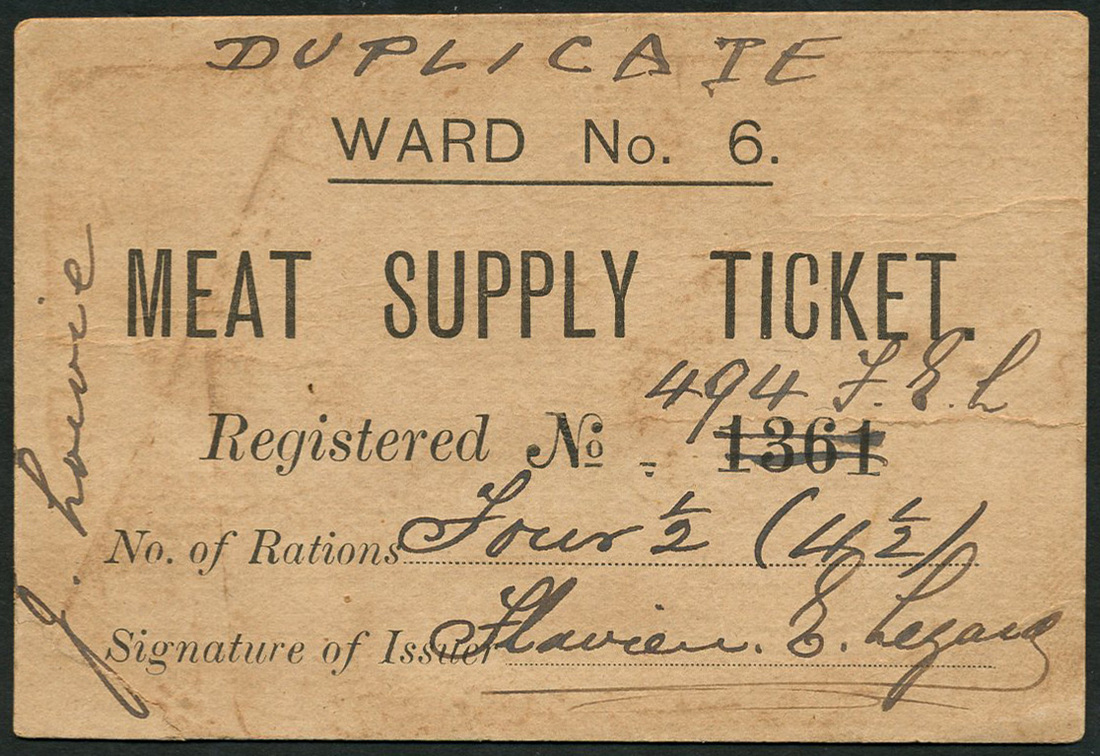 DUPLICATE
WARD No. 6.
MEAT SUPPLY TICKET.
494 F. E. L
Registered No. 1361
No. of Rations Four ½ (4 ½)
Signature of Issuer Flavien. E. Lezard
J. Lowie